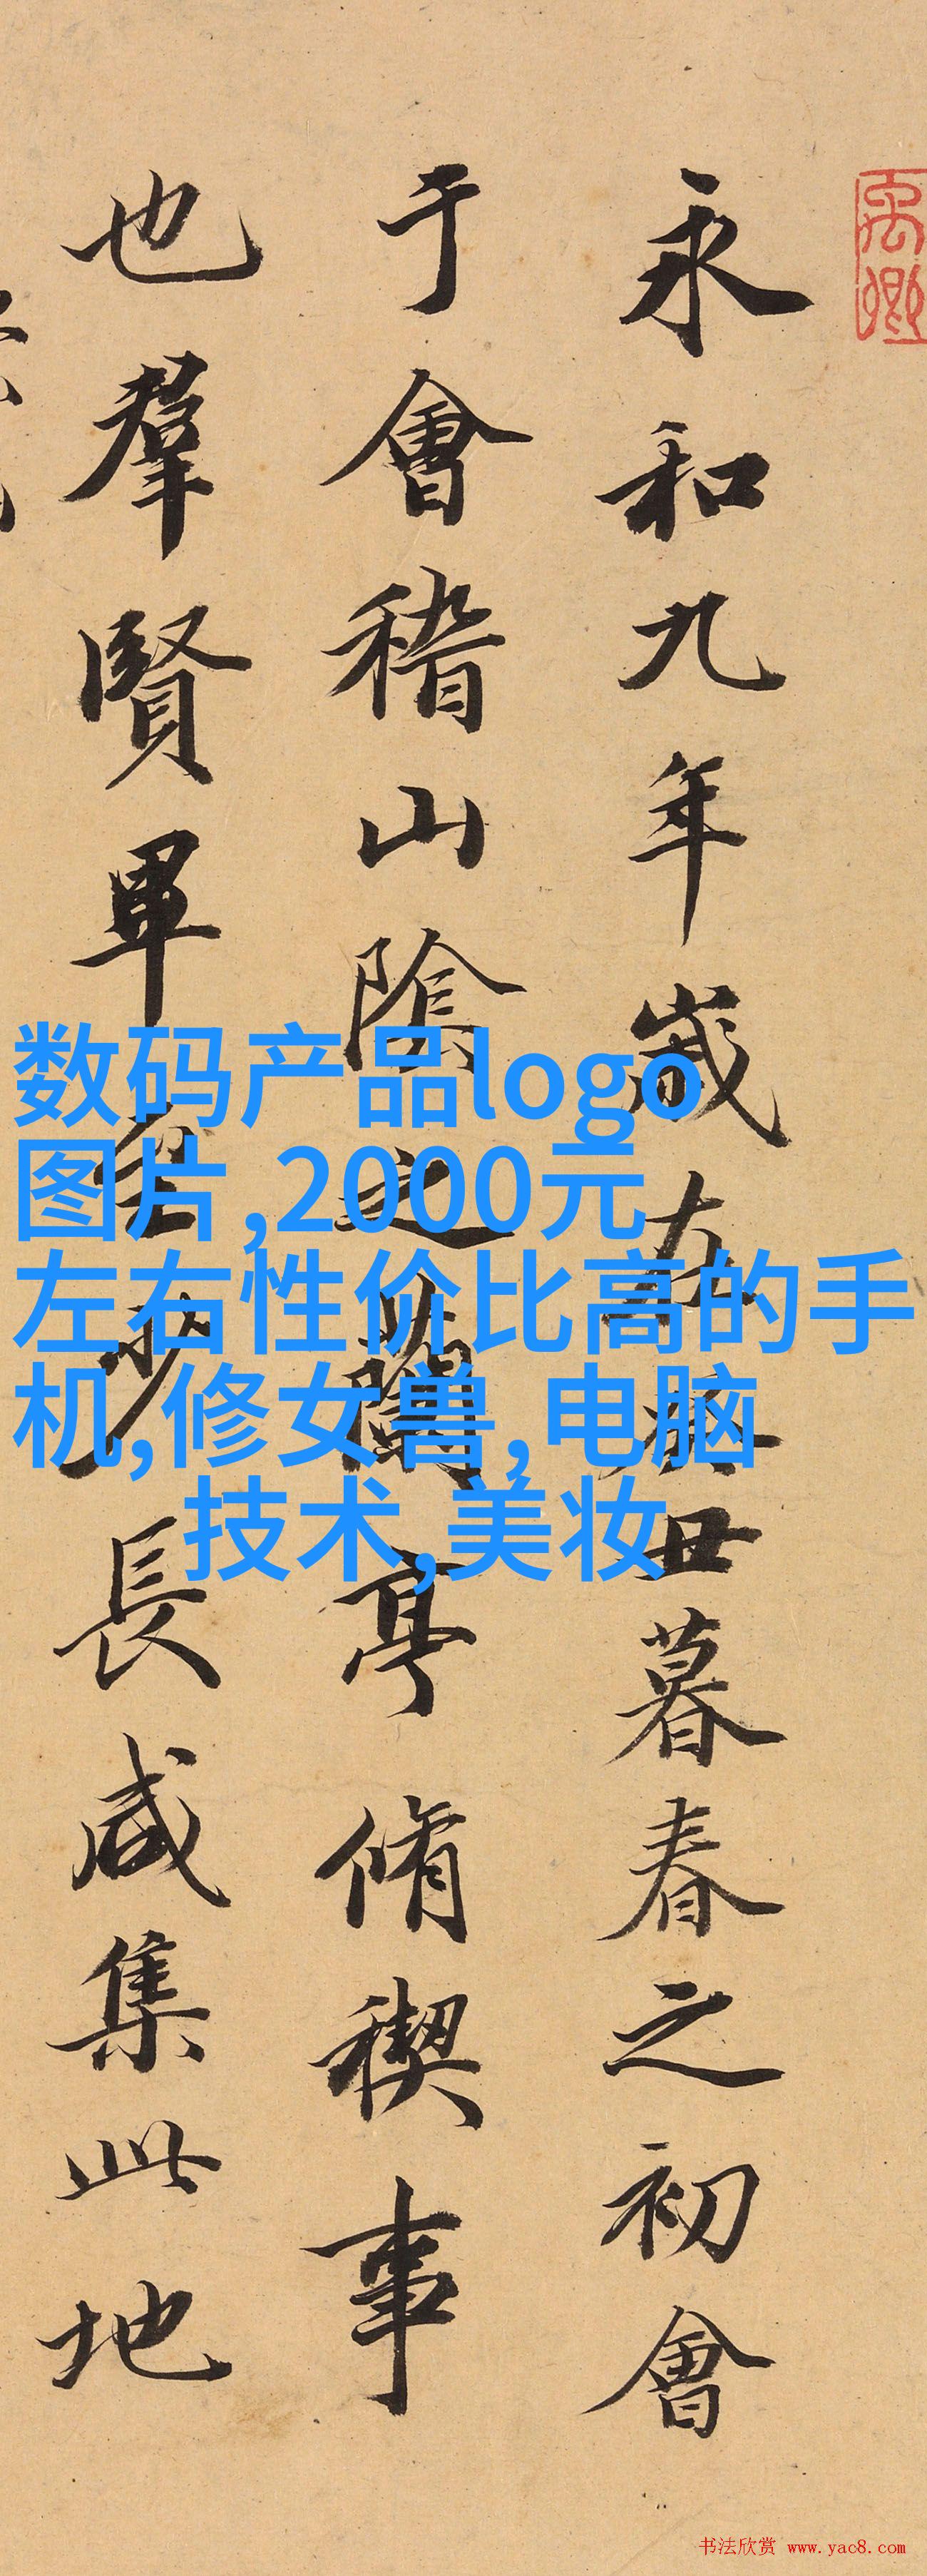 永和九年歲在癸丑暮春之初會
于會稽山陰之蘭亭脩稧事
也羣賢畢至少長咸集此地
数码产品logo
图片,2000元
左右性价比高的手
机,修女兽,电脑
技术,美妆
书法欣赏 www.yac8.com